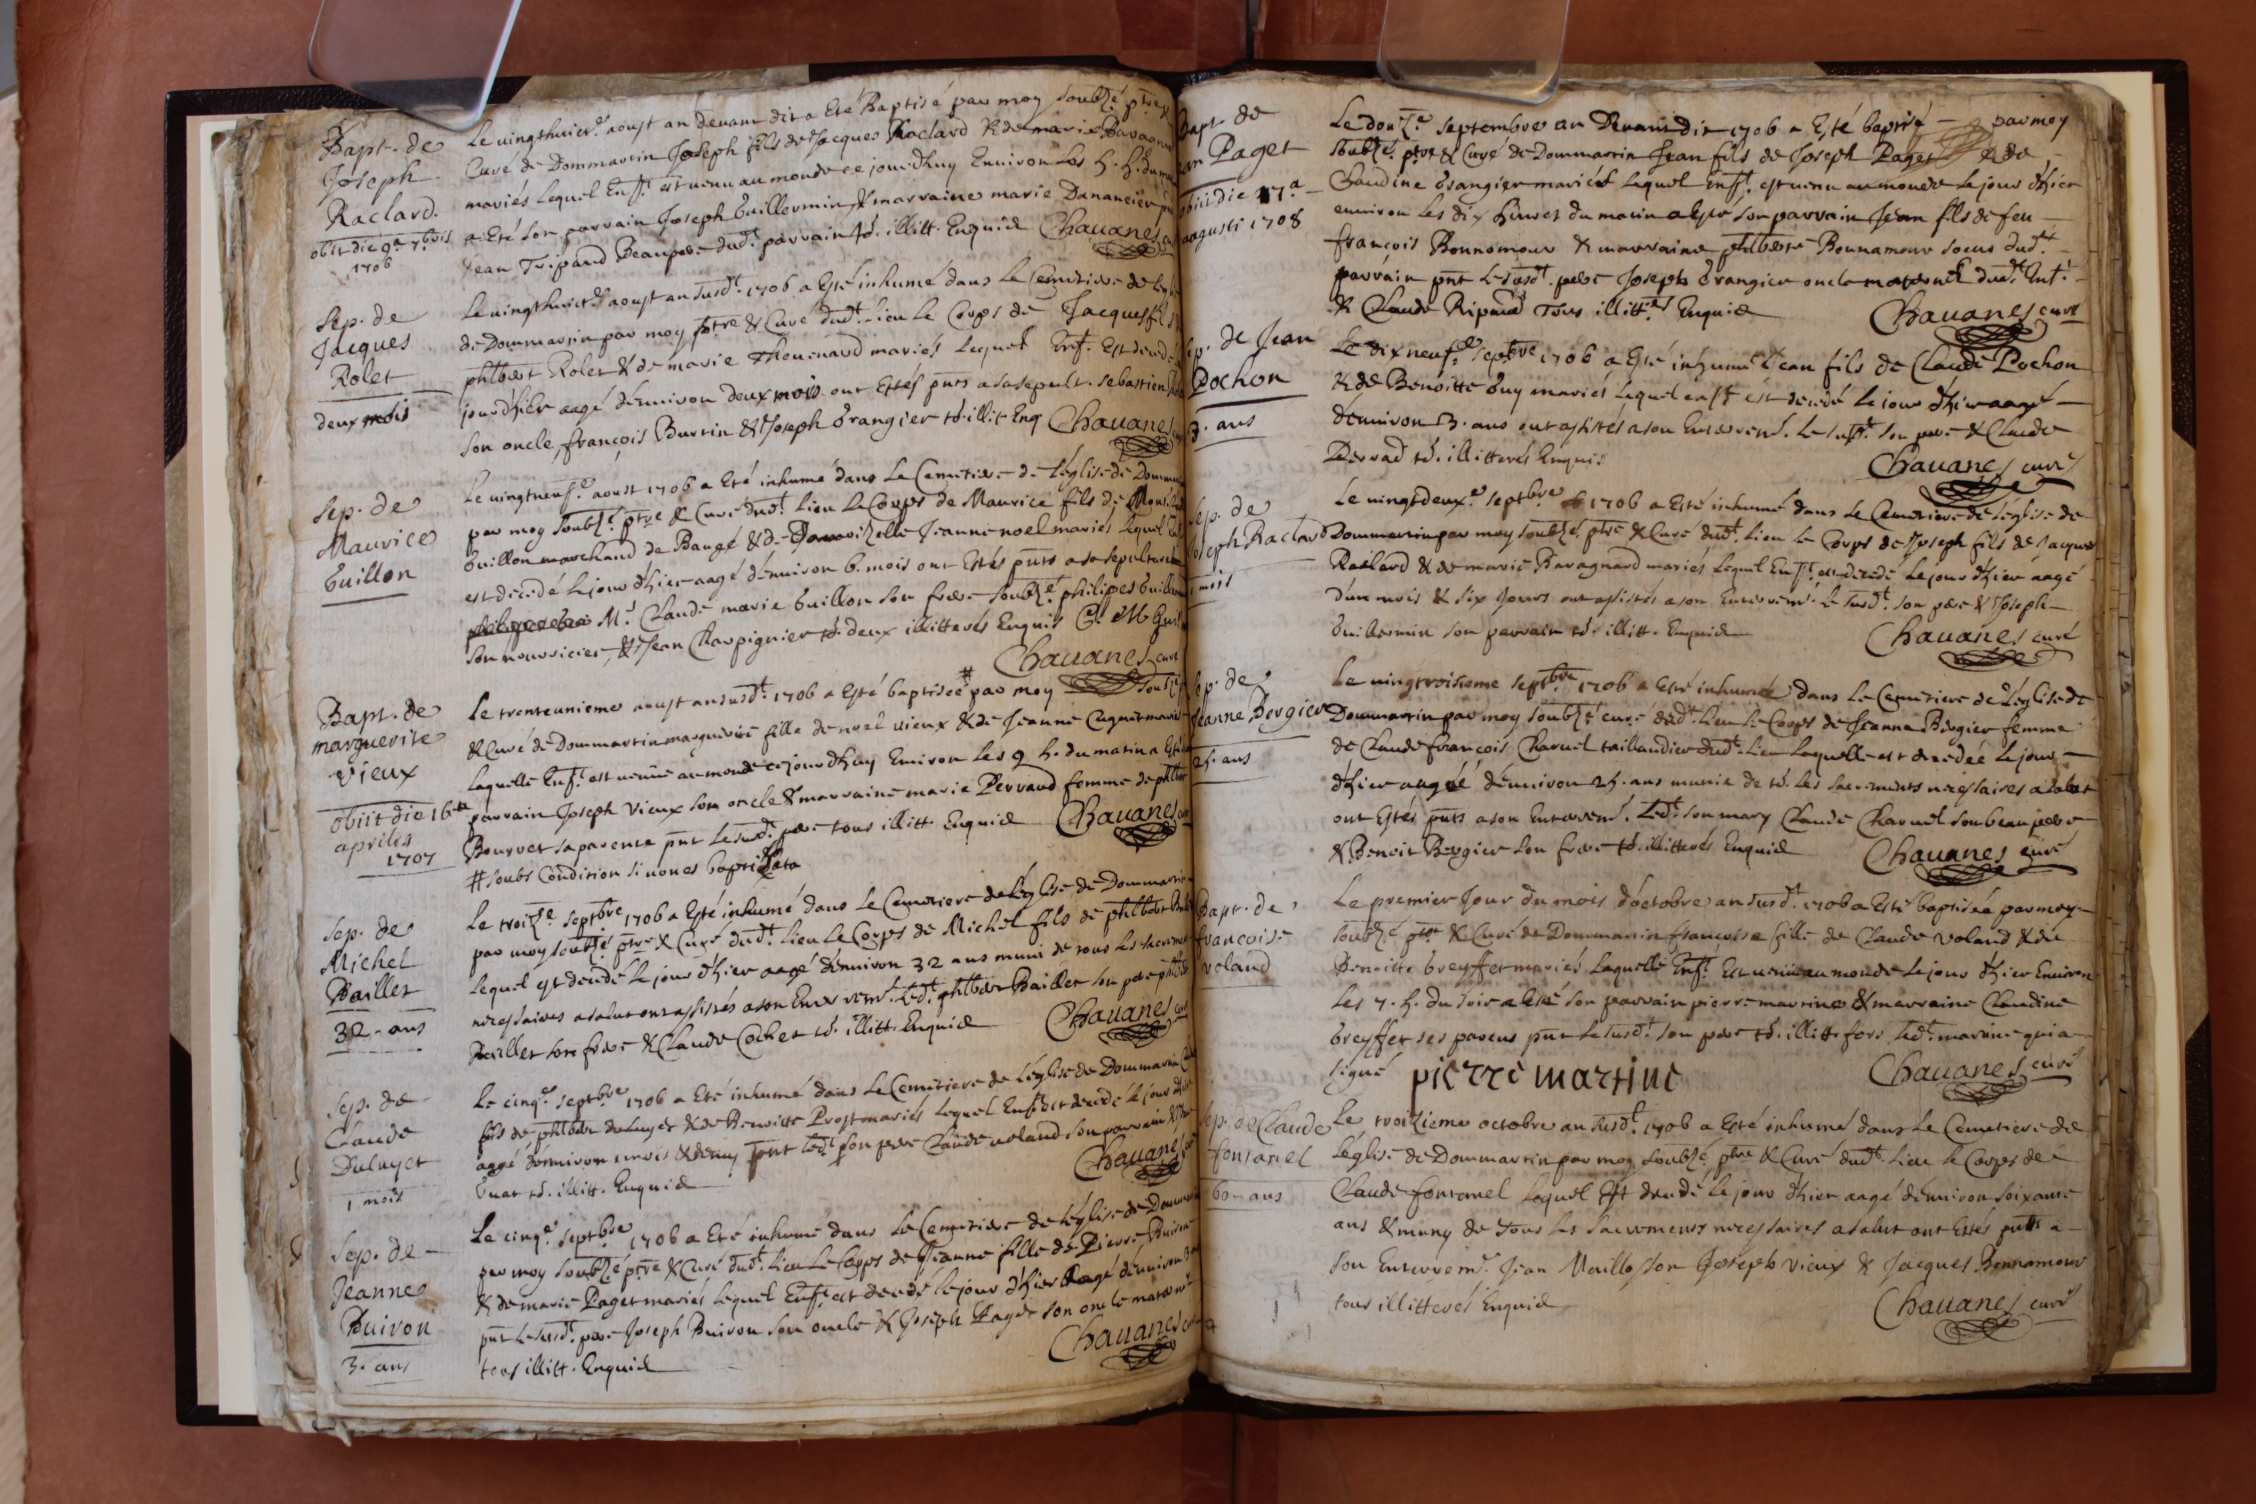 Bapt. de
Joseph
Raclard.
obiit die 9a 7bris
1706
Le vingthuict.e aoust an devant dit a Eté Baptisé par moy soubzé. ptre &
Curé de Dommartin Joseph fils de Jacques Raclard & de marie Bavagnard
mariés lequel Enft. est venu au monde ce jourdhuy Environ les 5. h. du matin
a Eté son parrain Joseph Guillermin & marraine marie Danancier pnt
Jean Tripand Beaupere dudt. parrain ts. illitt. Enquid Chavanes curé
Sep. de
Jacques
Rolet
deux mois
Le vingthuict.e aoust an susdt. 1706 a Esté inhumé dans le Cemitiere de leglise
de Dommartin par moy ptre & Curé dudt. Lieu Le Corps de Jacques fils de
philbert Rolet & de marie Thevenard mariés lequel Enft. Est decedé
jour d'hier aagé d'environ deux mois ont Estés pnts a sa sepult. sebastien Rolet
son oncle, françois Burtin & Joseph Grangier ts. illit. Enq Chavanes curé
Sep. de
Maurice
Guillon
Le vingtneuf.e aoust 1706 a Eté inhumé dans Le Cemetiere de l'église de Dommartin
par moy soubzé. ptre & Curé dudt. Lieu Le Corps de Maurice fils de Monsr.
Guillon marchand de Baugé & de Damoizelle Jeanne noel mariés lequel Enft
est decedé le jour d'hier aagé d'environ 6. mois ont Estés pnts a sa sepulture
Mr. Claude marie Guillon son frere soubzé philipes Guillon
son nourricier, & Jean Charpignier ts. deux illitterés Enquis C. M Guillon
Chavanes curé
Bapt. de
marguerite
Vieux
obiit die 16ta
aprilis
1707
Le trenteunieme aoust an susdt. 1706 a Esté baptisée # par moy soubzé
& Curé de Dommartin marguerite fille de noel vieux & de Jeanne Cuquet mariés
laquelle Enft. est venüe au monde ce jourdhuy Environ les 9 h. du matin a Eté son
parrain Joseph Vieux son oncle & marraine marie Perraud femme de philbert
Bourvet sa parente pnt Le susdt. pere tous illitt. Enquid Chavanes curé
# soubs Condition si non es baptizata
Sep. de
Michel
Bailler
32 - ans
Le troiz.e septbre 1706 a Esté inhumé dans le Cemetiere de l'église de Dommartin
par moy soubzé ptre & Curé dudt. Lieu Le Corps de Michel fils de philbert Bailler
lequel est decedé le jour d'hier aagé d'environ 32 ans muni de tous les sacrements
necessaires a salut ont assistés a son Enterremt. Ledt. philbert Bailler son pere philbert
Bailler son frere & Claude Cochet ts. illitt. Enquid Chavanes curé
Sep. de
Claude
Duluyet
1 mois
Le cinq.e septbre 1706 a Eté inhumé dans Le Cemetiere de l'église de Dommartin Claude
fils de philbert duluyet & de Benoitte Prost mariés lequel Enft est decedé le jour d'hier
aagé d'environ un mois & demy pnt ledt son pere Claude voland son parrain &
Guat ts. illitt. Enquid Chavanes curé
Sep. de
Jeanne
Buiron
3. ans
Le cinq.e septbre 1706 a Eté inhumé dans Le Cemetiere de l'église de Dommartin
par moy soubzé ptre & Curé dudt. Lieu Le Corps de Jeanne fille de Pierre Buiron
& de marie Paget mariés lequel Enft. est decedé le jour d'hier aagé d'environ 3 ans
pnt Le susdt. pere Joseph Buiron son oncle & Joseph Paget son oncle maternel
tous illitt. Enquid Chavanes curé
Bapt de
Jean Paget
obiit die 17a
augusti 1708
Le douz.e septembre an Devant dit 1706 a Esté baptisé par moy
soubzé. ptre & Curé de Dommartin Jean fils de Joseph Paget & de
Claudine Grangier mariés lequel Enft. est venu au monde le jour d'hier
environ les dix heures du matin a Esté son parrain Jean fils de feu
françois Bonnamour & marraine philberte Bonnamour soeur dudt.
parrain pnt Le susdt. pere Joseph Grangier oncle maternel dudt. Enft.
& Claude Ripaud Tous illittes Enquid Chavanes curé
Sep. de Jean
Pochon
3. ans
Le dix neuf.e septbre 1706 a Esté inhumé Jean fils de Claude Pochon
& de Benoitte Guy mariés lequel enft est decedé le jour d'hier aagé
d'environ 3. ans ont assistés a son Enterremt. Le susdt. son pere & Claude
Perrad ts. illitterés Enquis Chavanes curé
Sep. de
Joseph Raclard
1 mois
Le vingtdeux.e septbre 1706 a Esté inhumé dans le Cemetiere de l'église de
Dommartin par moy soubzé. ptre & Curé dudt. Lieu le Corps de Joseph fils de Jacques
Raclard & de marie Bavagnard mariés lequel Enft. est decedé le jour d'hier aagé
d'un mois & six jours ont assistés a son Enterremt. Le susdt. son pere & Joseph
Guillermin son parrain ts. illitt. Enquid Chavanes curé
Sep. de
Jeanne Bergier
25. ans
Le vingtroisieme septbre 1706 a Esté inhumée dans le Cemetiere de l'église de
Dommartin par moy soubzé curé dudt. Lieu le Corps de Jeanne Bergier femme
de Claude françois Charvel taillandier dudt. Lieu laquelle est decedée le jour
d'hier aagée d'environ 25. ans munie de ts. les sacrements necessaires a salut
ont Estés pnts a son Enterremt. Ledt. son mary Claude Charvel son beaupere
& Benoit Bergier son frere ts. illitterés Enquid Chavanes curé
Bapt. de
francoise
voland
Le premier Jour du mois d'octobre an susdt. 1706 a Esté baptisée par moy
soubzé ptre & Curé de Dommartin françoise fille de Claude voland & de
Benoitte breyffet mariés laquelle Enft. Est venüe au monde le jour d'hier Environ
les 7. h. du soir a Esté son parrain pierre martine & marraine Claudine
breyffet ses parens pnt le susdt. son pere ts. illitt. fors ledt. martine qui a
signé pierre martine Chavanes curé
Sep. de Claude
fontanel
60 - ans
Le troizieme octobre an susdt. 1706 a Esté inhumé dans le Cemetiere de
l'église de Dommartin par moy soubzé. ptre & Curé dudt. Lieu le Corps de
Claude fontanel lequel Est decedé le jour d'hier aagé d'environ soixante
ans & muny de Tous les sacrements necessaires a salut ont Estés pnts a
son Enterremt. Jean Maillosson Joseph vieux & Jacques Bonnamour
tous illitterés Enquid Chavanes curé